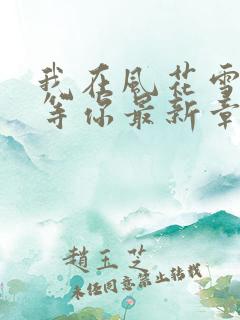 我在风花雪
等你最新章
趙玉芝
未经同意禁止转载